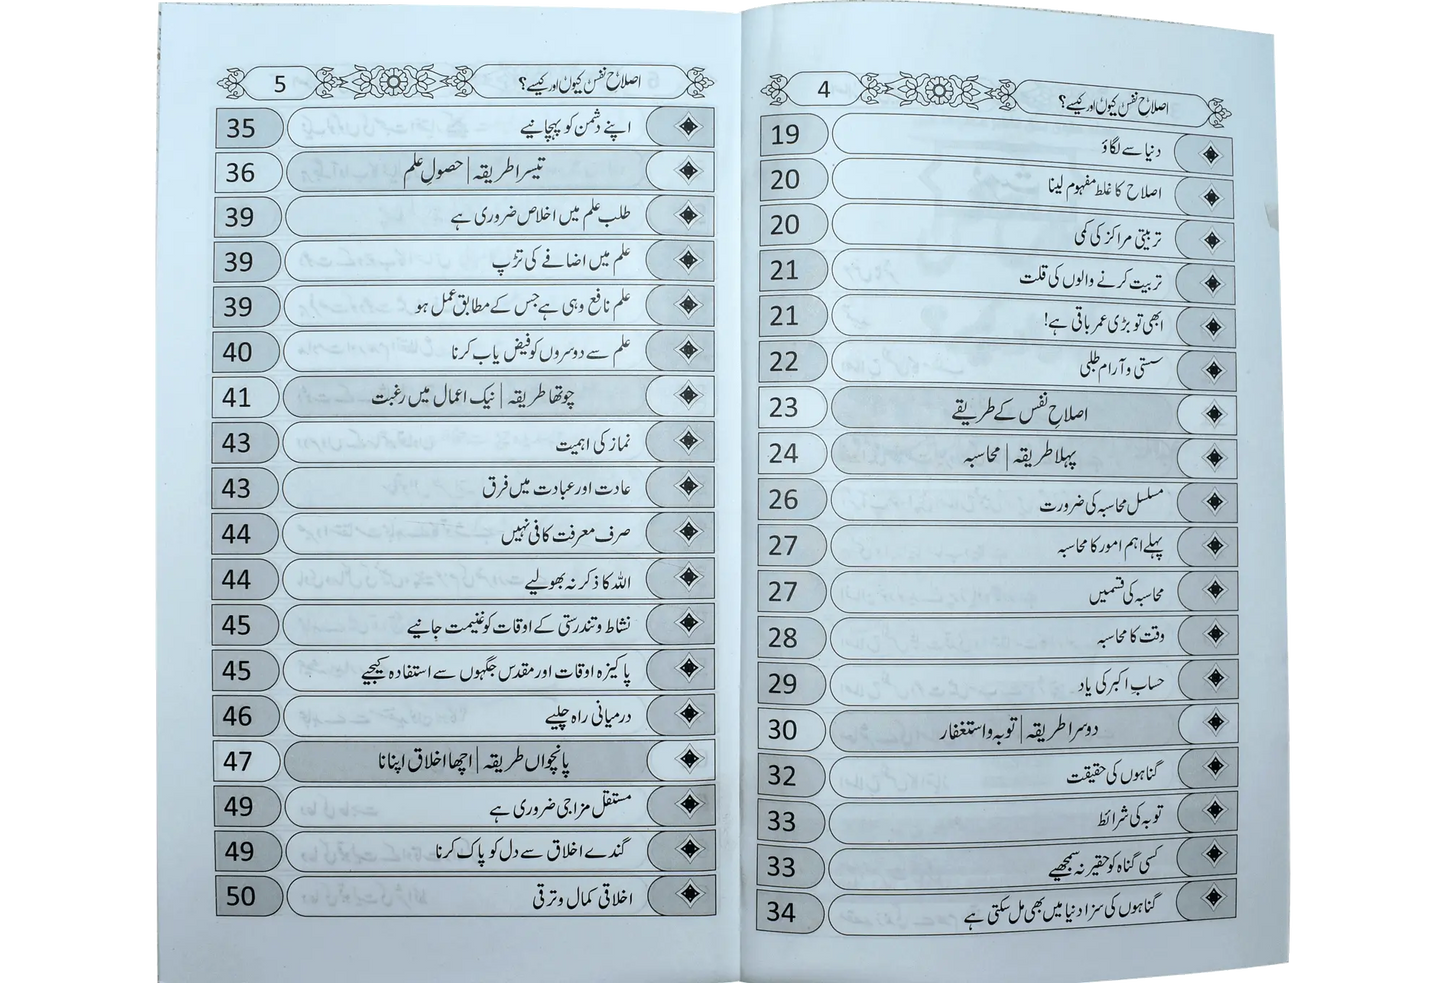 اصلاحِ نفس کیوں اور کیسے؟ 4
دنیا سے لگاؤ 19
اصلاح کا غلط مفہوم لینا 20
تربیتی مراکز کی کمی 20
تربیت کرنے والوں کی قلت 21
ابھی تو بڑی عمر باقی ہے! 21
سستی و آرام طلبی 22
اصلاحِ نفس کے طریقے 23
پہلا طریقہ | محاسبہ 24
مسلسل محاسبہ کی ضرورت 26
پہلے اہم امور کا محاسبہ 27
محاسبہ کی قسمیں 27
وقت کا محاسبہ 28
حساب اکبر کی یاد 29
دوسرا طریقہ | توبہ و استغفار 30
گناہوں کی حقیقت 32
توبہ کی شرائط 33
کسی گناہ کو حقیر نہ سمجھیے 33
گناہوں کی سزا دنیا میں بھی مل سکتی ہے 34
اصلاحِ نفس کیوں اور کیسے؟ 5
اپنے دشمن کو پہچانیے 35
تیسرا طریقہ | حصولِ علم 36
طلب علم میں اخلاص ضروری ہے 39
علم میں اضافے کی تڑپ 39
علم نافع وہی ہے جس کے مطابق عمل ہو 39
علم سے دوسروں کو فیض یاب کرنا 40
چوتھا طریقہ | نیک اعمال میں رغبت 41
نماز کی اہمیت 43
عادت اور عبادت میں فرق 43
صرف معرفت کافی نہیں 44
اللہ کا ذکر نہ بھولیے 44
نشاط و تندرستی کے اوقات کو غنیمت جانیے 45
پاکیزہ اوقات اور مقدس جگہوں سے استفادہ کیجیے 45
درمیانی راہ چلیے 46
پانچواں طریقہ | اچھا اخلاق اپنانا 47
مستقل مزاجی ضروری ہے 49
گندے اخلاق سے دل کو پاک کرنا 49
اخلاقی کمال و ترقی 50